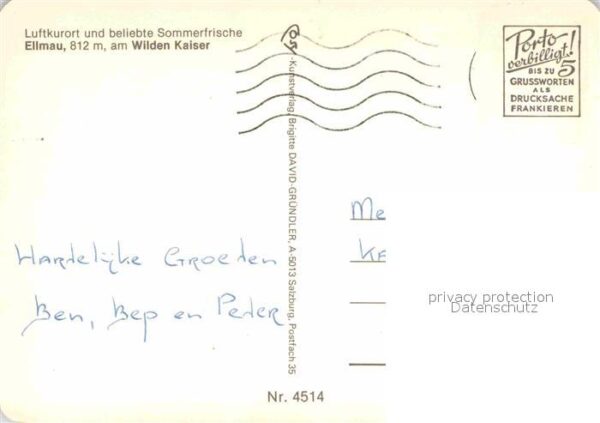 Luftkurort und beliebte Sommerfrische
Ellmau, 812 m, am Wilden Kaiser
Porto
verbilligt!
BIS ZU 5
GRUSSWORTEN
ALS
DRUCKSACHE
FRANKIEREN
-Kunstverlag, Brigitte DAVID-GRÜNDLER, A-5013 Salzburg, Postfach 35
Hartelijke Groeten
Ben, Bep en Peter
Me
privacy protection
Datenschutz
Nr. 4514